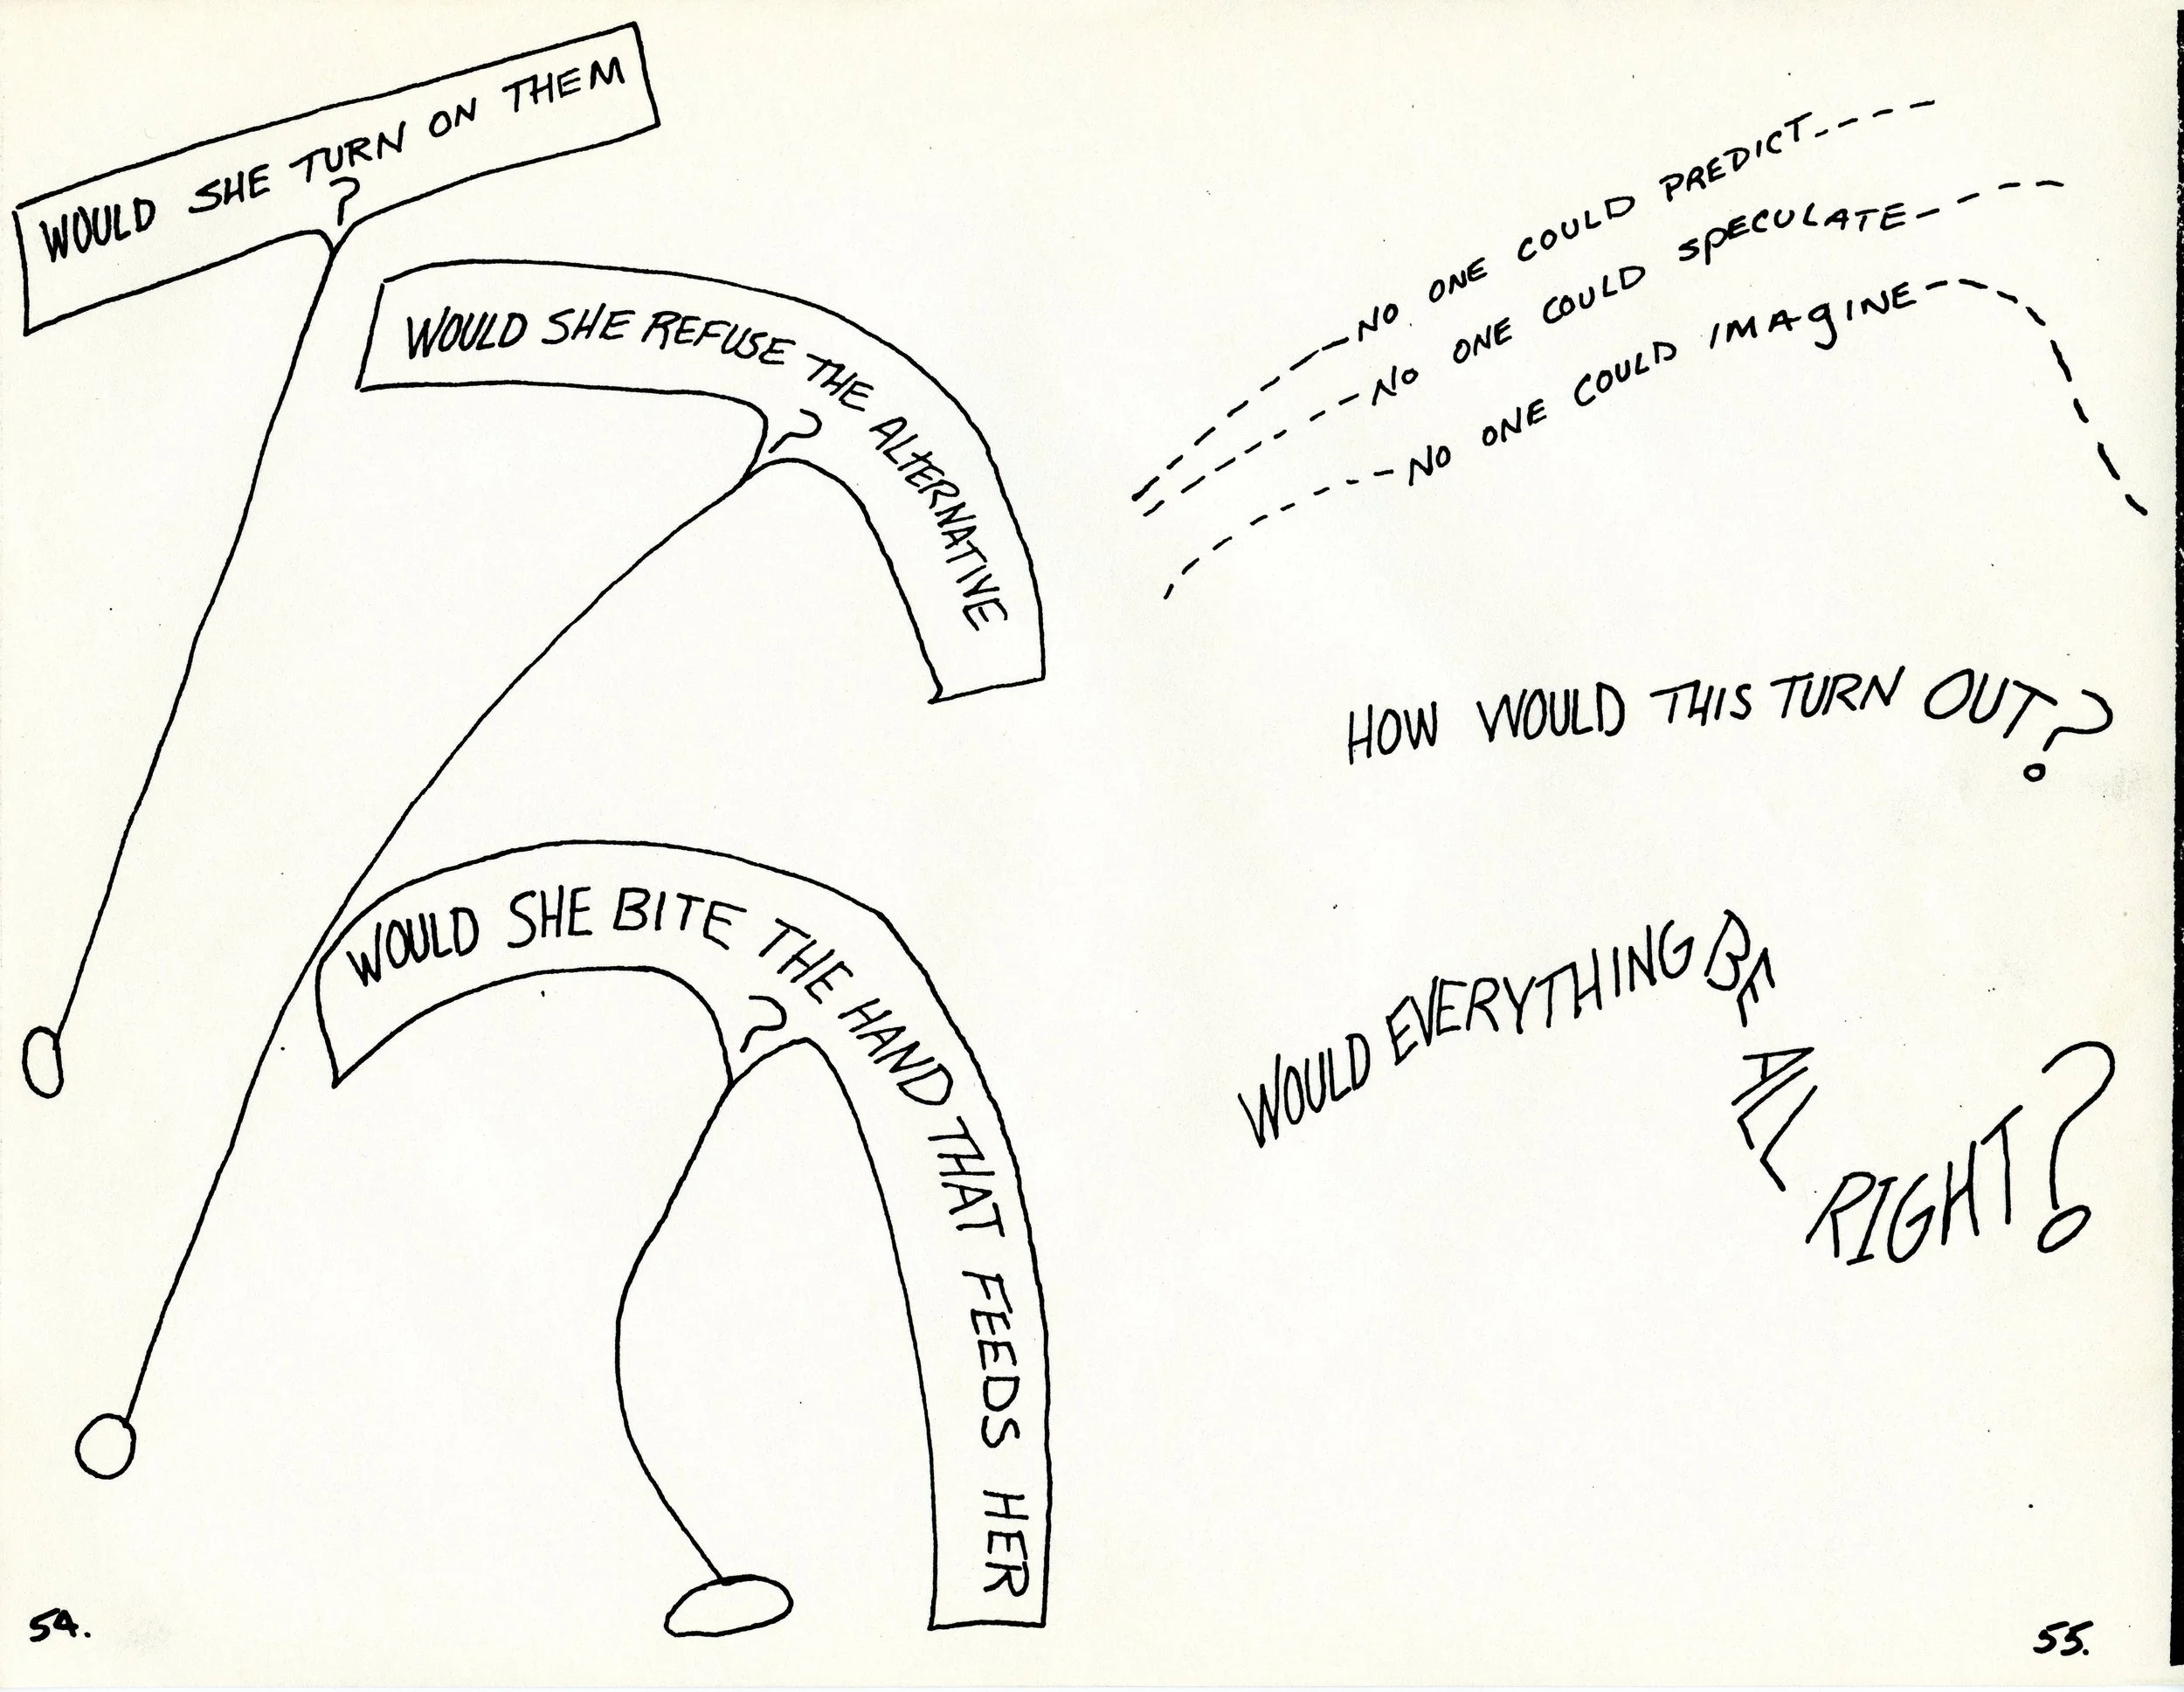 WOULD SHE TURN ON THEM
?
WOULD SHE REFUSE THE ALTERNATIVE
?
WOULD SHE BITE THE HAND THAT FEEDS HER
?
54.
NO ONE COULD PREDICT
NO ONE COULD SPECULATE
NO ONE COULD IMAgINE
HOW WOULD THIS TURN OUT?
WOULD EVERYTHING BE ALL RIGHT?
55.